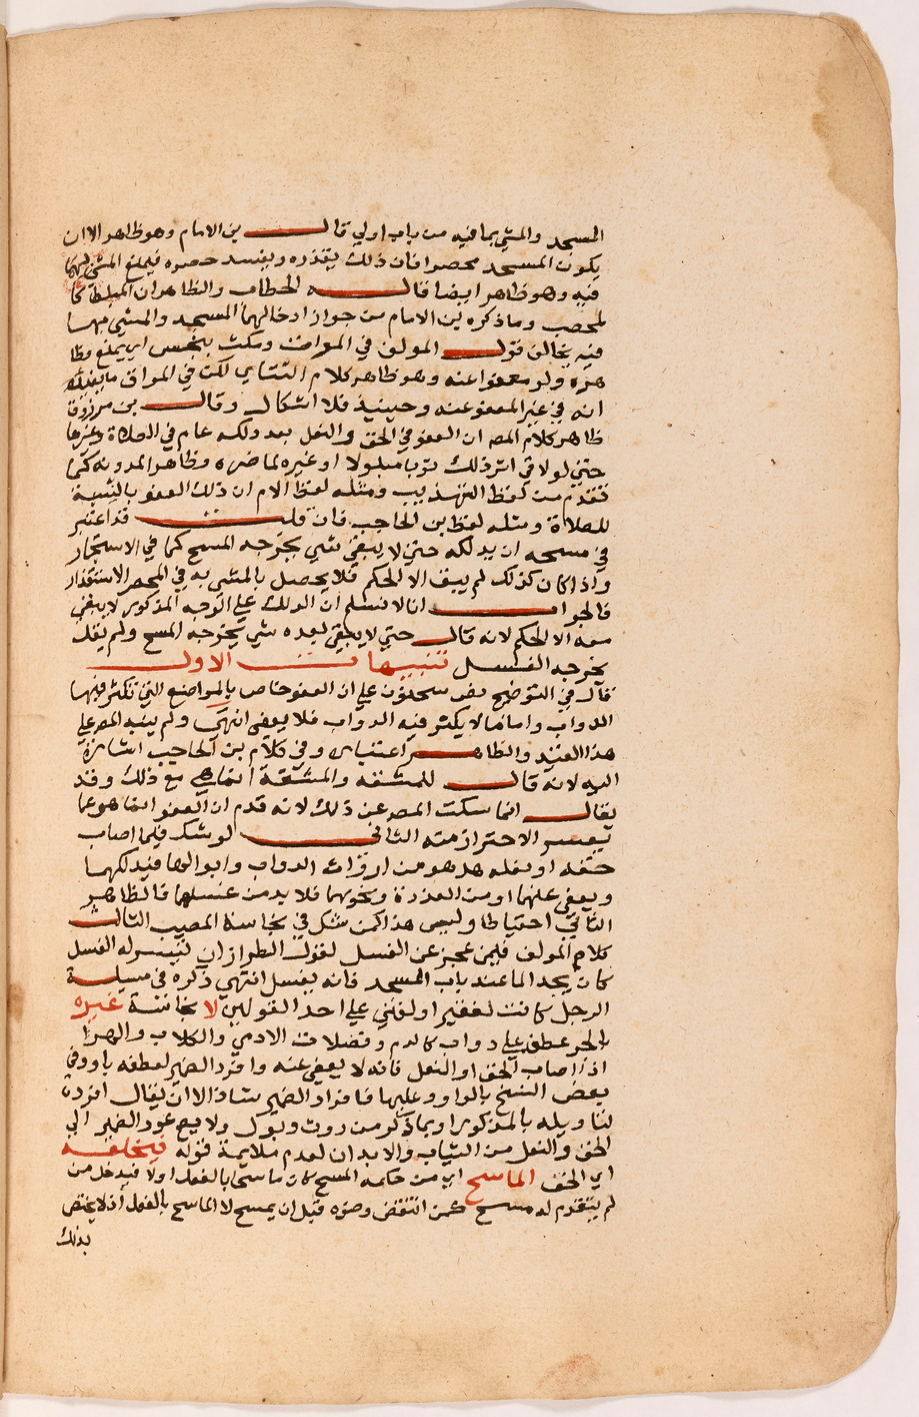 المسجد والمشي بما فيه من باب اولي قال بن الامام وهو ظاهر الا ان
يكون المسجد محصرا فان ذلك يقذره ويفسد حصره فيمنع المشي بهما
فيه وهو ظاهر ايضا قاله الحطاب والظاهر ان المبلط كا
لمحصب وما ذكره بن الامام من جواز ادخالهما المسجد والمشي بهما
فيه يخالف قول المولف في الموات ومكث بنجس اي يمنع وظا
هره ولو معفوا عنه وهو ظاهر كلام التتاي لكن في المواق ما يفيد
انه في غير المعفو عنه وحينيذ فلا اشكال وقال بن مرزوق
ظاهر كلام المص ان العفو في الخف والنعل بعد دلكه عام في الصلاة وغيرها
حتي لو لاقي اثر ذلك ثوبا مبلولا او غيره لما ضره وظاهر المدونه كما
تقدم من لفظ التهذيب ومثله لفظ الام ان ذلك العفو بالنسبة
للصلاة ومثله لفظ بن الحاجب فان قلت قد اعتبر
في مسحه ان يدلكه حتي لا يبقي شي يخرجه المسح كما في الاستجمار
واذا كان كذلك لم يبق الا الحكم فلا يحصل بالمشي به في المحصر الاستقذار
فالجواب انا لا نسلم ان الدلك علي الوجه المذكور لا يبقي
معه الا الحكم لانه قال حتي لا يبقي بعده شي يخرجه المسح ولم يقل
يخرجه الغسل تنبيهات الاول
قال في التوضيح نص سحنون علي ان العفو خاص بالمواضع التي تكثر فيها
الدواب واما ما لا يكثر فيه الدواب فلا يعفي انتهي ولم ينبه المص علي
هذا القيد والظاهر اعتباره وفي كلام بن الحاجب اشارة
اليه لانه قال للمشقه والمشقة انما هي مع ذلك وقد
يقال انما سكت المص عن ذلك لانه قدم ان العفو انما هو عما
يعسر الاحتراز منه الثاني لو شك فيما اصاب
خفه او نعله هل هو من ارواث الدواب وابوالها فيدلكهما
ويعفي عنهما او من العذرة ونحوها فلا بد من غسلها فالظاهر
الثاني احتياطا وليس هذا كمن شك في نجاسة المصيب الثالث
كلام المولف فيمن عجز عن الغسل لقول الطراز ان تيسر له الغسل
كان يجد الما عند باب المسجد فانه يغسل انتهي ذكره في مسيلة
الرجل كانت لفقير او لغني علي احد القولين لا نجاسة غيره
بالجر عطف علي دواب كالدم وفضلات الادمي والكلاب والهرا
اذا اصاب الخف او النعل فانه لا يعفي عنه وافرد الضمير لعطفه باو وفي
بعض النسخ بالواو وعليها فافراد الضمير شاذ الا ان يقال افرده
لتاويله بالمذكور او بما ذكر من روث وبول ولا يصح عود الضمير الي
الخف والنعل من الثياب والابدان لعدم ملايمة قوله فيخلعه
اي الخف الماسح اي من حكمه المسح كان ماسحا بالفعل او لا فيدخل من
لم يتقدم له مسح كمن انتقض وضوه قبل ان يمسح لا الماسح بالفعل اذ لا يختص
بذلك